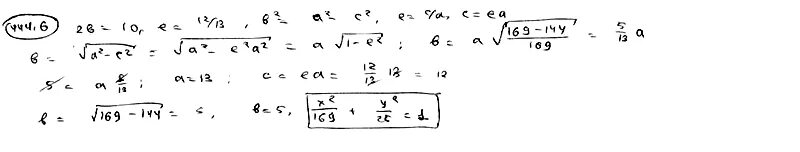 444.6 2b = 10, e = 12/13, b² = a² - c², e = c/a, c = ea
b = √(a² - c²) = √(a² - e²a²) = a √(1 - e²) ; b = a √((169 - 144)/169) = 5/13 a
5 = a 5/13 ; a = 13 ; c = ea = 12/13 · 13 = 12
b = √(169 - 144) = 5, b = 5, x²/169 + y²/25 = 1